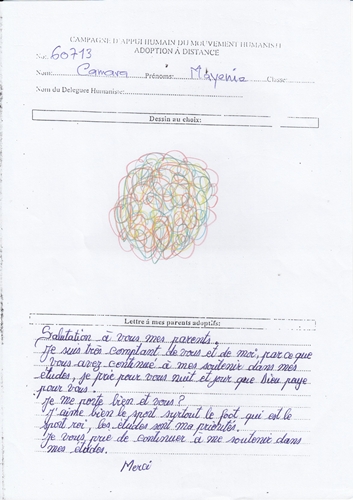 CAMPAGNE D'APPUI HUMAIN DU MOUVEMENT HUMANISTE
ADOPTION A DISTANCE
No: 60713
Nom: Camara Prénoms: Mayenie Classe:
Nom du Delegue Humaniste:
Dessin au choix:
Lettre à mes parents adoptifs:
Salutation à vous mes parents.
Je suis très comptant de vous et de moi, par ce que
vous avez continué à me soutenir dans mes
études, je prie pour vous nuit et jour que Dieu paye
pour vous.
Je me porte bien et vous?
J'aime bien le sport surtout le foot, qui est le
sport roi, les études sont ma priorités.
Je vous prie de continuer à me soutenir dans
mes études.
Merci